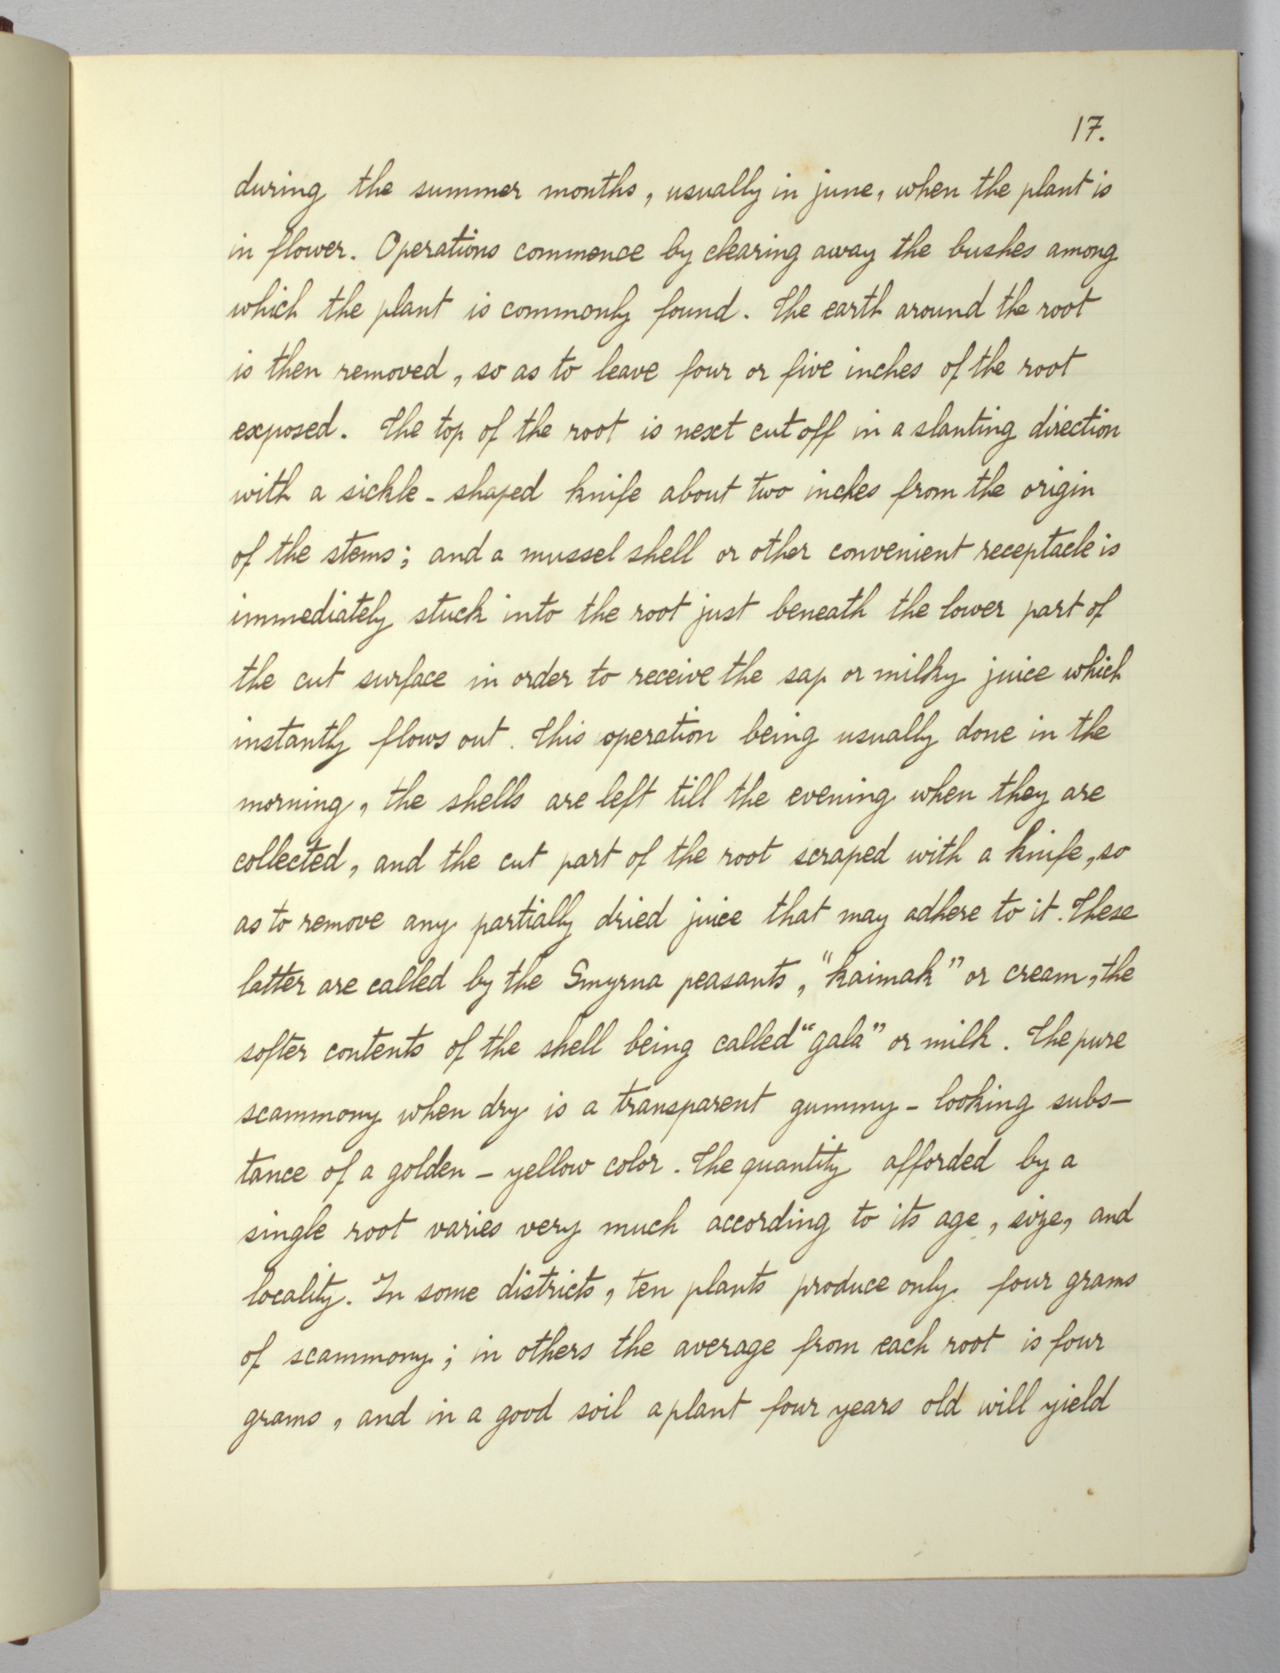 17.
during the summer months, usually in june, when the plant is
in flower. Operations commence by clearing away the bushes among
which the plant is commonly found. The earth around the root
is then removed, so as to leave four or five inches of the root
exposed. The top of the root is next cut off in a slanting direction
with a sickle-shaped knife about two inches from the origin
of the stems; and a mussel shell or other convenient receptacle is
immediately stuck into the root just beneath the lower part of
the cut surface in order to receive the sap or milky juice which
instantly flows out. This operation being usually done in the
morning, the shells are left till the evening when they are
collected, and the cut part of the root scraped with a knife, so
as to remove any partially dried juice that may adhere to it. These
latter are called by the Smyrna peasants, "kaimak" or cream, the
softer contents of the shell being called "gala" or milk. The pure
scammony when dry is a transparent gummy-looking subs-
tance of a golden-yellow color. The quantity afforded by a
single root varies very much according to its age, size, and
locality. In some districts, ten plants produce only four grams
of scammony; in others the average from each root is four
grams, and in a good soil a plant four years old will yield